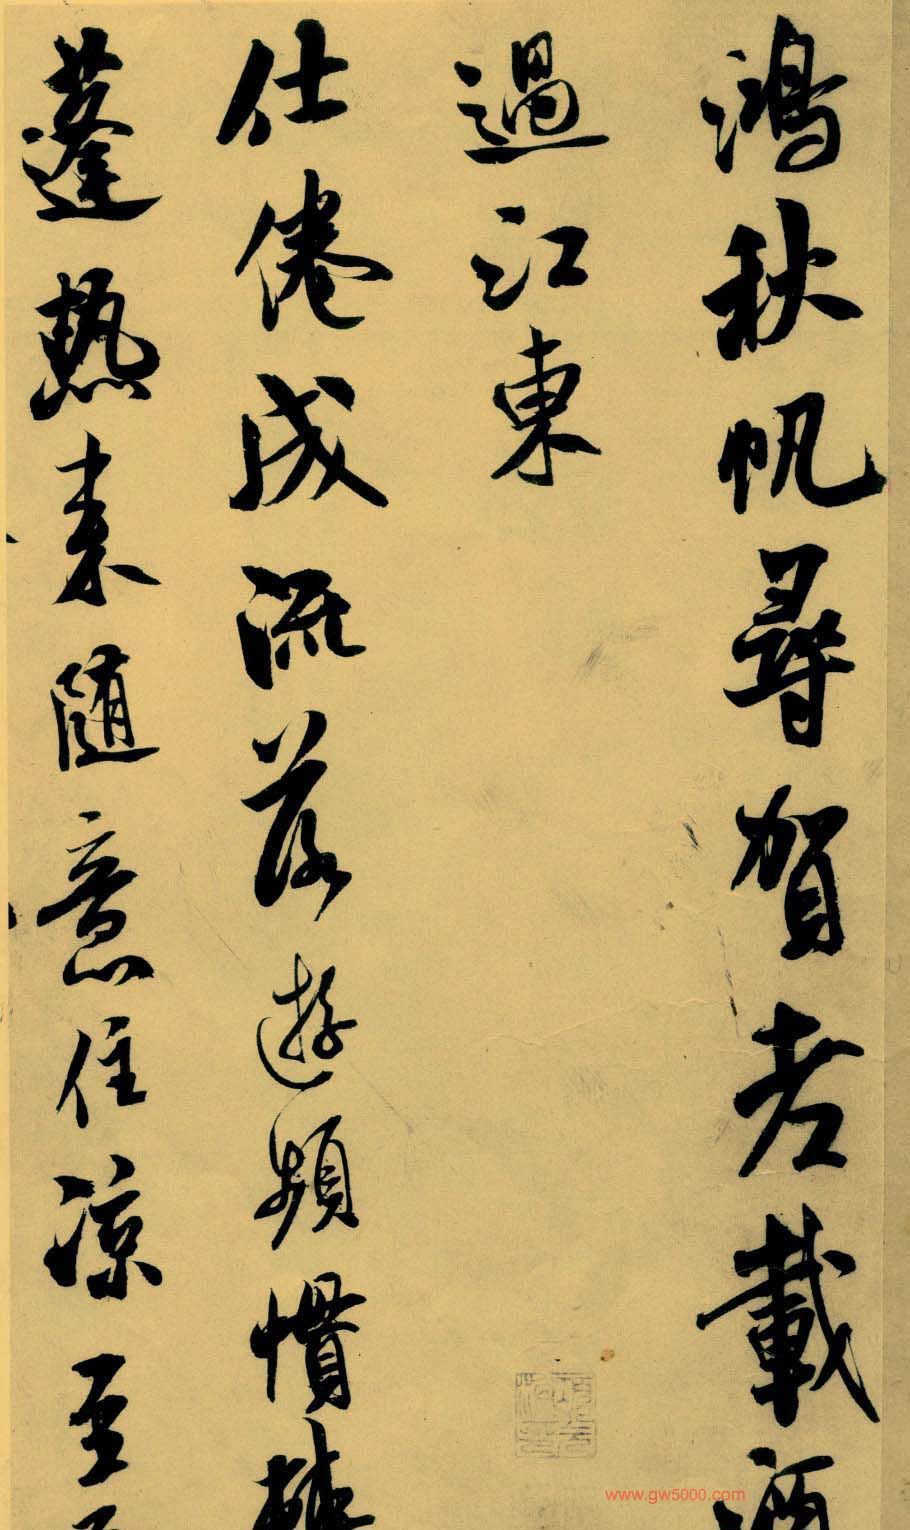 鴻秋帆尋賀老載酒
過江東
仕倦成流落遊頻慣轉
蓬熱來隨意住涼至
www.gw5000.com